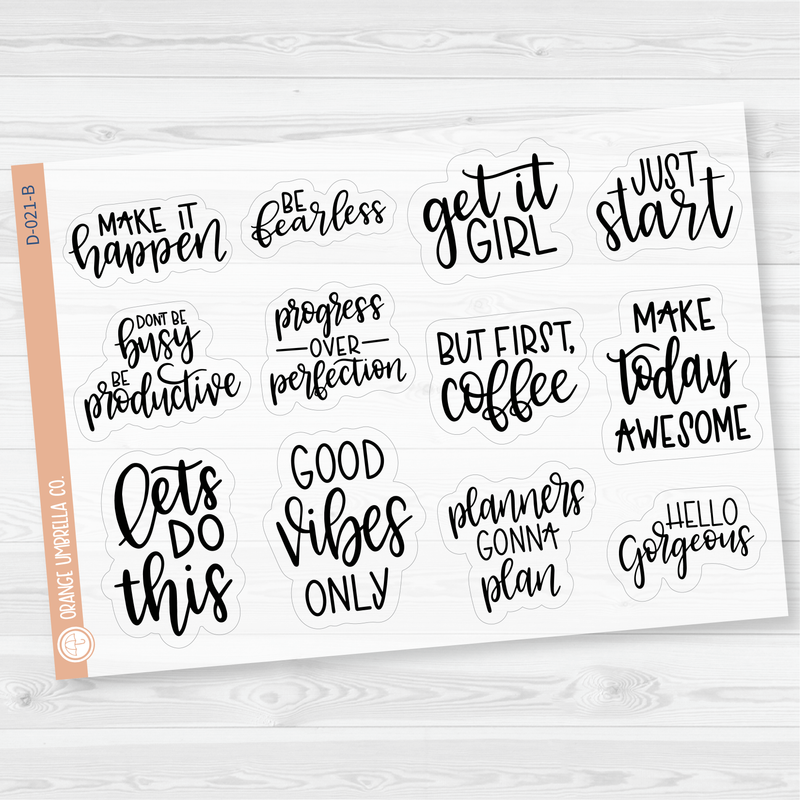 D-021-B
MAKE IT
happen
BE
fearless
get it
GIRL
JUST
start
DONT BE
busy
BE
productive
progress
OVER
perfection
BUT FIRST,
coffee
MAKE
today
AWESOME
lets
DO
this
GOOD
vibes
ONLY
planners
GONNA
plan
HELLO
Gorgeous
ORANGE UMBRELLA CO.